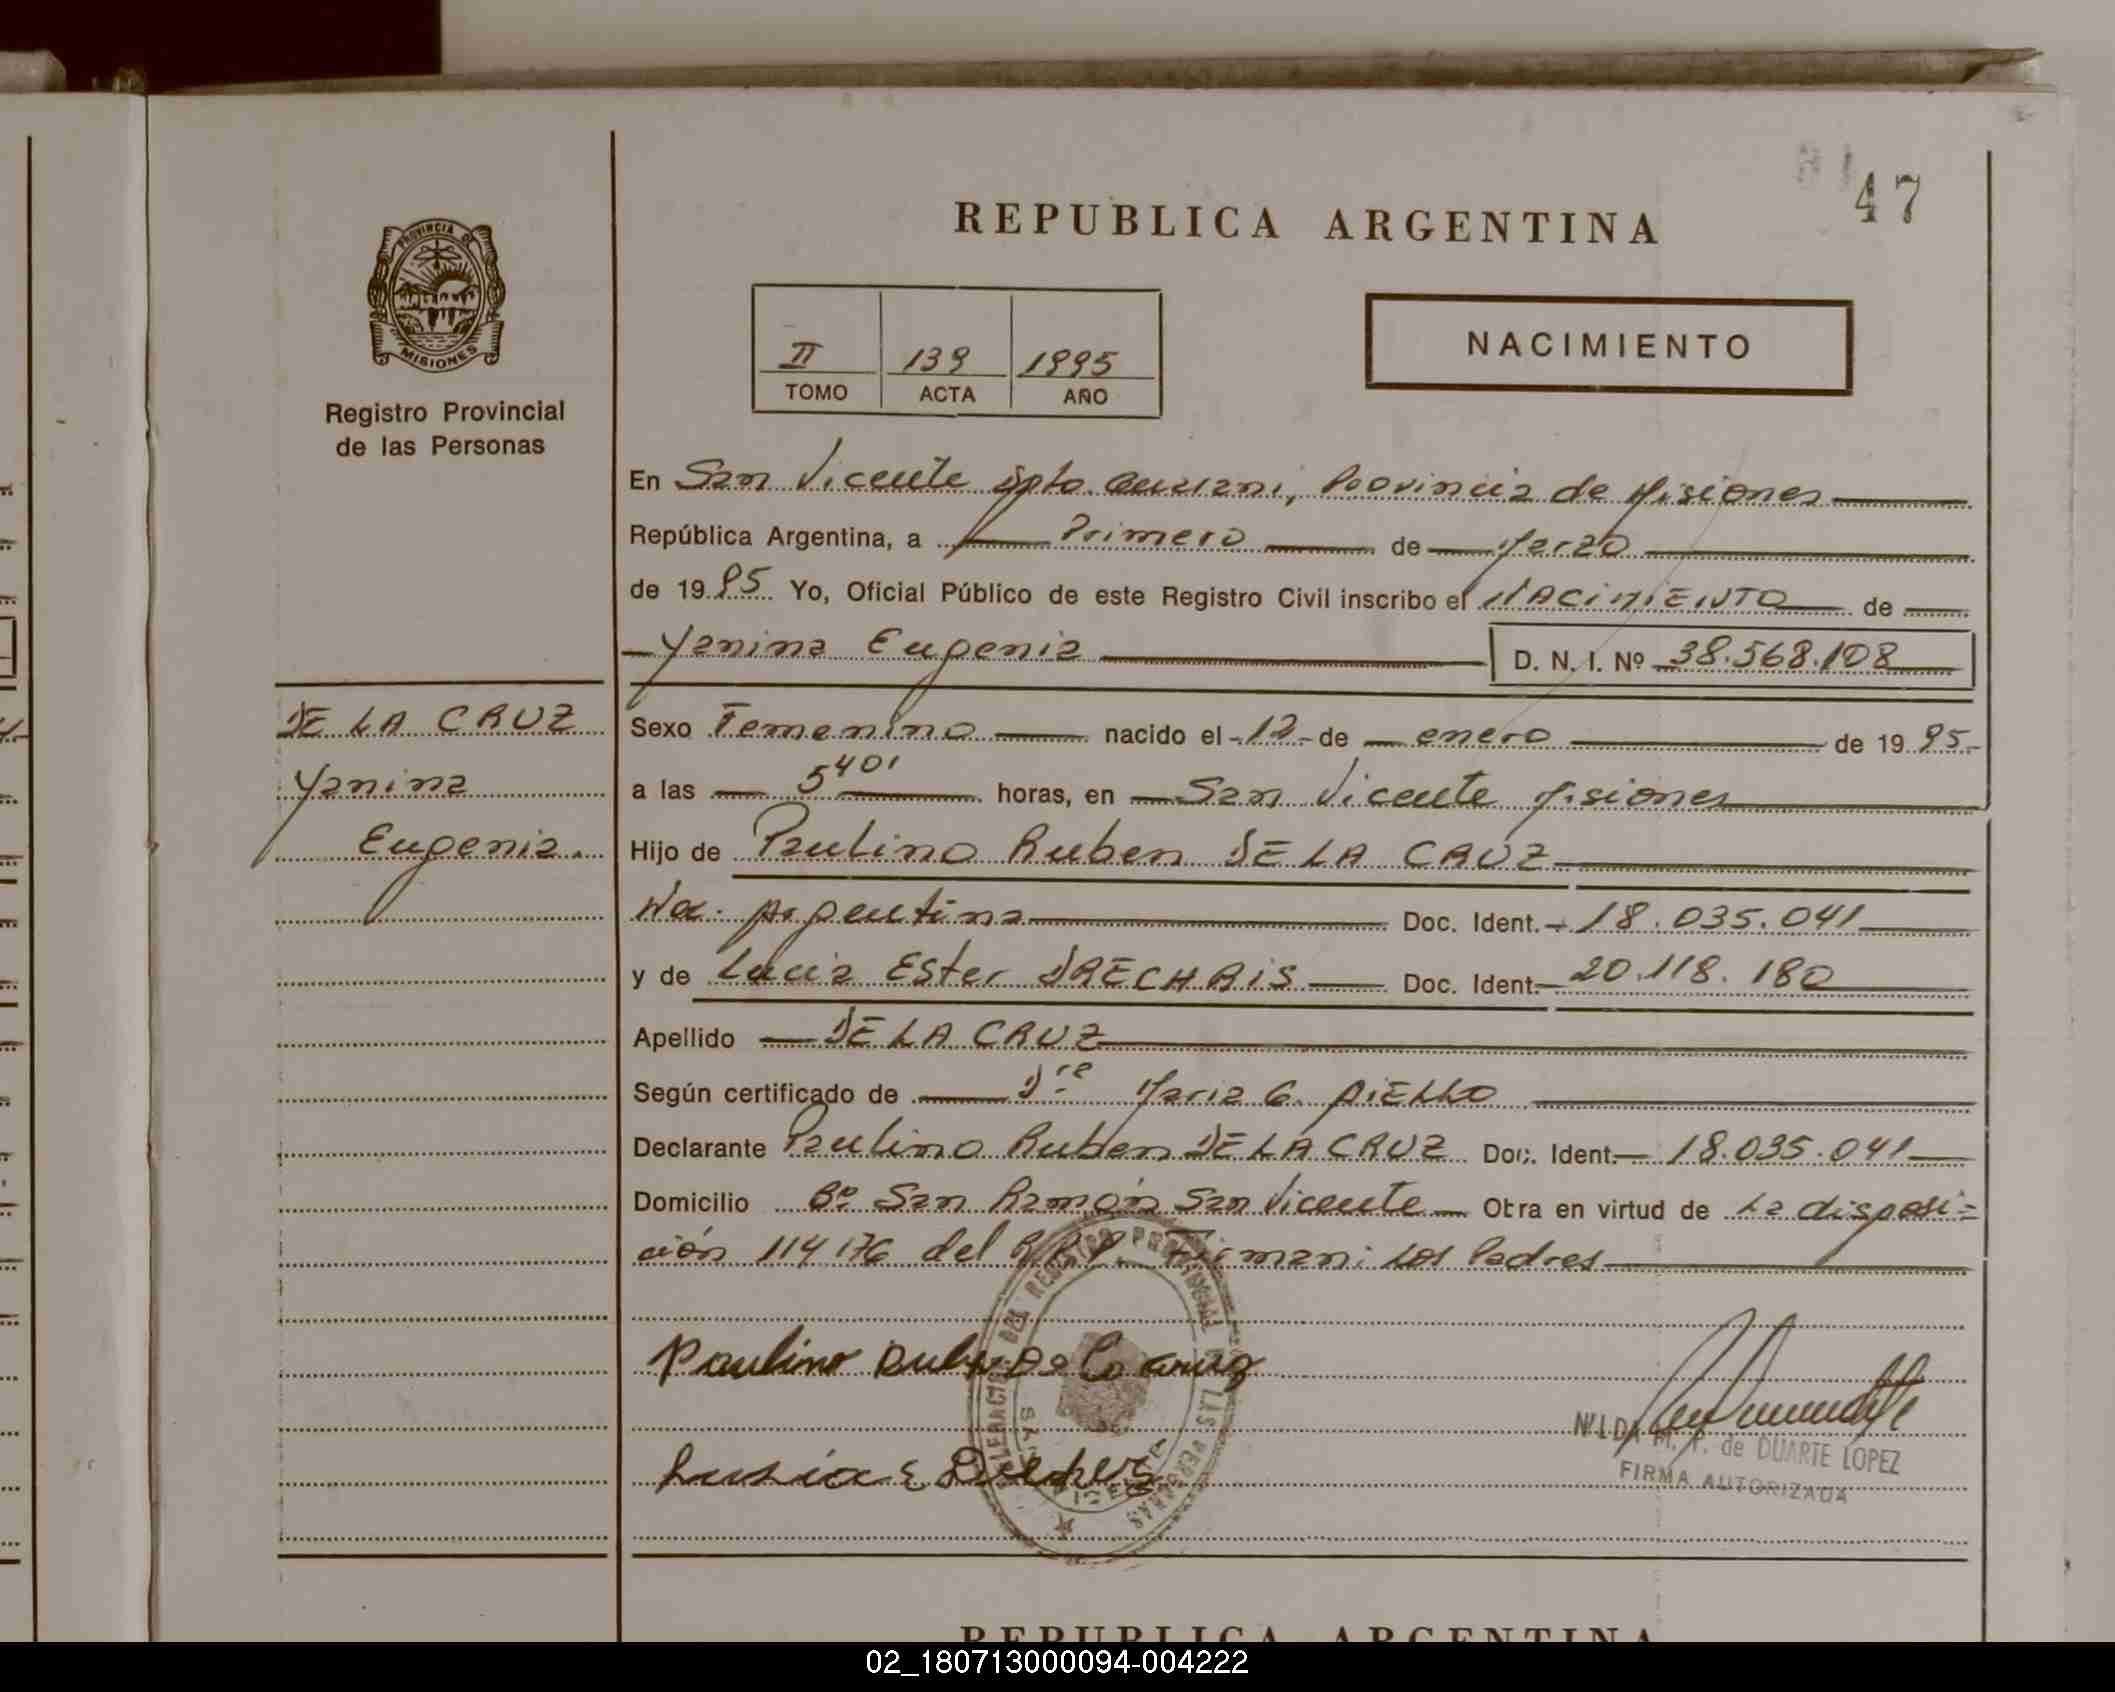 47
REPUBLICA ARGENTINA
PROVINCIA DE
MISIONES
Registro Provincial
de las Personas
II 139 1995
TOMO ACTA AÑO
NACIMIENTO
En San Vicente Dpto. Guarani, Provincia de Misiones
República Argentina, a Primero de Marzo
de 1995 Yo, Oficial Público de este Registro Civil inscribo el NACIMIENTO de
Yanina Eugenia D. N. I. Nº 38.568.108
DE LA CRUZ
Yanina
Eugenia.
Sexo Femenino nacido el 12 de enero de 1995
a las 5 40' horas, en San Vicente Misiones
Hijo de Paulino Ruben DE LA CRUZ
Na. Argentina Doc. Ident. 18.035.041
y de Lucia Ester DRECHRIS Doc. Ident. 20.118.180
Apellido DE LA CRUZ
Según certificado de Dra Maria G. AIELLO
Declarante Paulino Ruben DE LA CRUZ Doc. Ident. 18.035.041
Domicilio Bº San Ramón San Vicente Otra en virtud de La disposi=
ción 114/76 del R.P.P. Firman: Los Padres
DEL REGISTRO PROVINCIAL LAS PERSONAS
Paulino De La Cruz
NILDA M. de DUARTE LOPEZ
FIRMA AUTORIZADA
REPUBLICA ARGENTINA
02_180713000094-004222